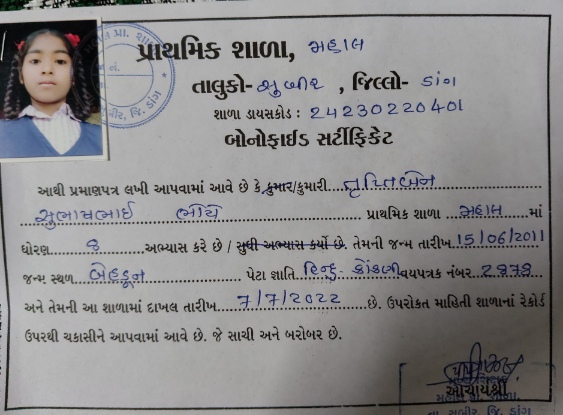 પ્રાથમિક શાળા, મહાલ
તાલુકો- સુબીર , જિલ્લો- ડાંગ
શાળા ડાયસકોડ : 24230220401
બોનોફાઈડ સર્ટીફિકેટ
આથી પ્રમાણપત્ર લખી આપવામાં આવે છે કે, કુમાર/કુમારી....તૃપ્તિબેન
સુભાષભાઈ ભોયે પ્રાથમિક શાળા મહાલ માં
ધોરણ 8 અભ્યાસ કરે છે / સુધી અભ્યાસ કર્યો છે. તેમની જન્મ તારીખ 15/06/2011
જન્મ સ્થળ પેટા જ્ઞાતિ હિન્દુ- કોંકણી વયપત્રક નંબર 2878
અને તેમની આ શાળામાં દાખલ તારીખ 7/7/2022 છે. ઉપરોકત માહિતી શાળાનાં રેકોર્ડ
ઉપરથી ચકાસીને આપવામાં આવે છે. જે સાચી અને બરોબર છે.
આચાર્યશ્રી
તા. સુબીર, જિ. ડાંગ